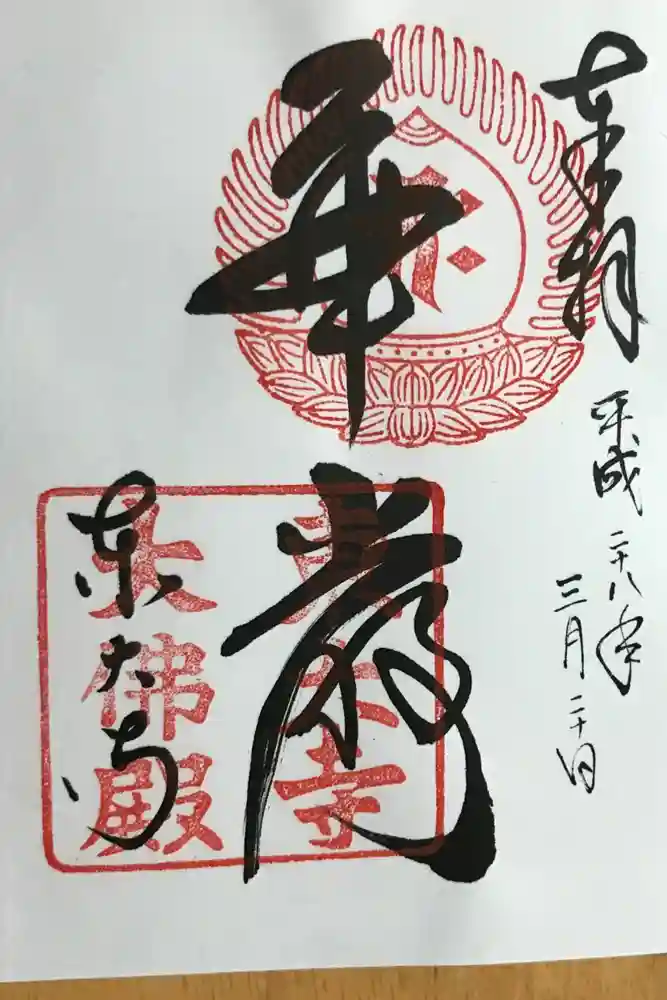 奉拝
平成二十八年
三月二十日
華厳
東大寺
東大寺
大佛殿